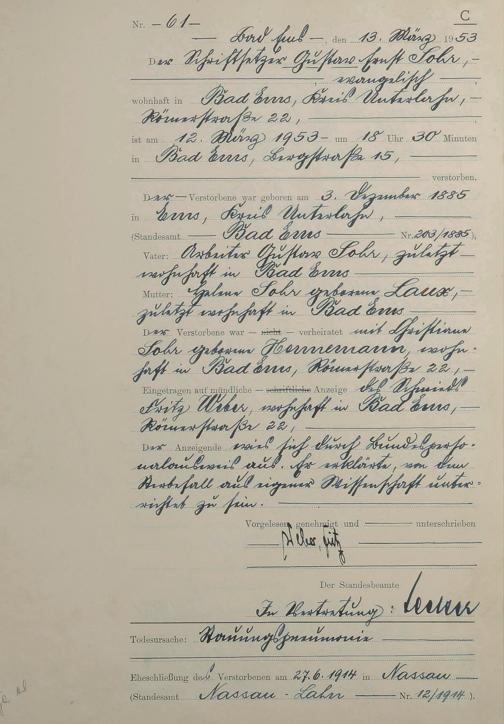 C
Nr. 61
Bad Ems, den 13. März 1953
Der Schriftsetzer Gustav Ernst Sohr,
evangelisch
wohnhaft in Bad Ems, Kreis Unterlahn,
Römerstraße 22,
ist am 12. März 1953 um 18 Uhr 30 Minuten
in Bad Ems, Bergstraße 15,
verstorben.
Der Verstorbene war geboren am 3. Dezember 1885
in Ems, Kreis Unterlahn,
(Standesamt Bad Ems Nr. 203/1885).
Vater: Arbeiter Gustav Sohr, zuletzt
wohnhaft in Bad Ems
Mutter: Helene Sohr geborene Laux,
zuletzt wohnhaft in Bad Ems
Der Verstorbene war — nicht — verheiratet mit Christiane
Sohr geborene Hermemann, wohn-
haft in Bad Ems, Römerstraße 22,
Eingetragen auf mündliche — schriftliche Anzeige des Schmieds
Fritz Weber, wohnhaft in Bad Ems,
Römerstraße 22,
Der Anzeigende wies sich durch Bundesperso-
nalausweis aus. Er erklärte, von dem
Sterbefall aus eigener Wissenschaft unter-
richtet zu sein.
Vorgelesen, genehmigt und unterschrieben
Weber, Fritz
Der Standesbeamte
In Vertretung:
Todesursache: Stauungspneumonie
Eheschließung des Verstorbenen am 27.6.1914 in Nassau
(Standesamt Nassau-Lahn Nr. 12/1914).